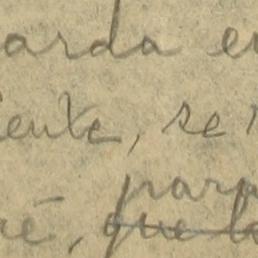 arda e
iente, se
para
ré, que l